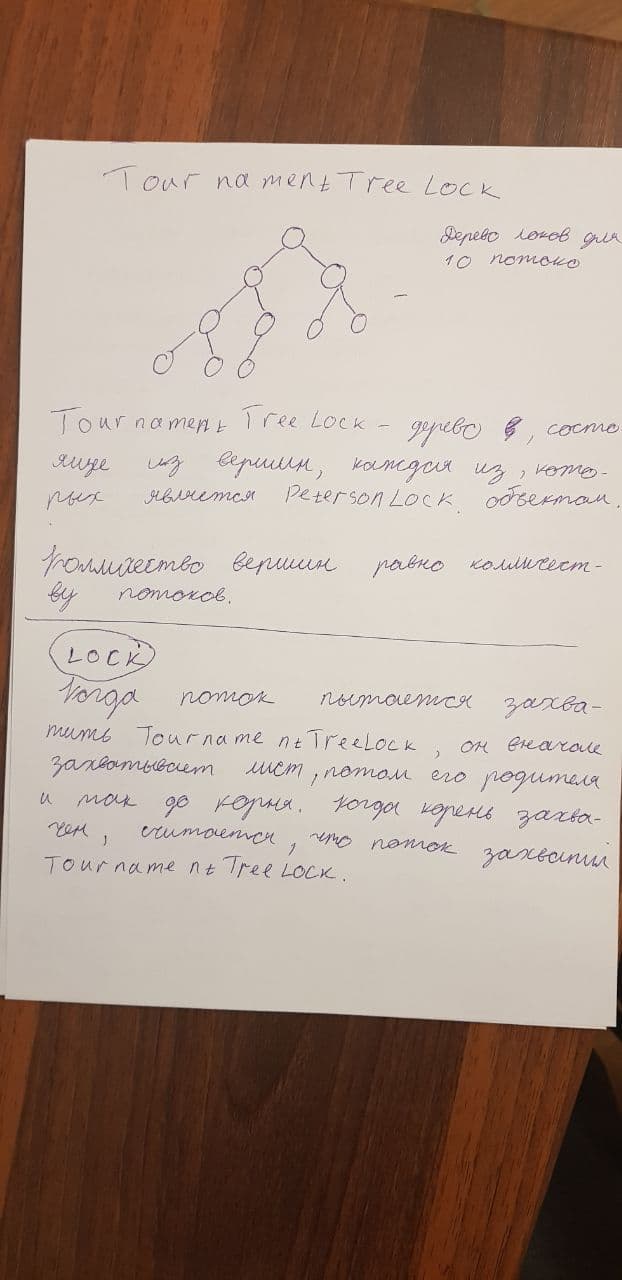 Tournament Tree Lock
Дерево локов для
10 потоко
Tournament Tree Lock - дерево , состо
ящие из вершин, каждая из, кото-
рых является PetersonLock. объектом.
Колличество вершин равно колличест-
ву потоков.
LOCK
Когда поток пытается захва-
тить TournamentTreeLock, он вначале
захватывает лист, потом его родителя
и так до корня. Когда корень захва-
чен, считается, что поток захватил
Tournament Tree Lock.